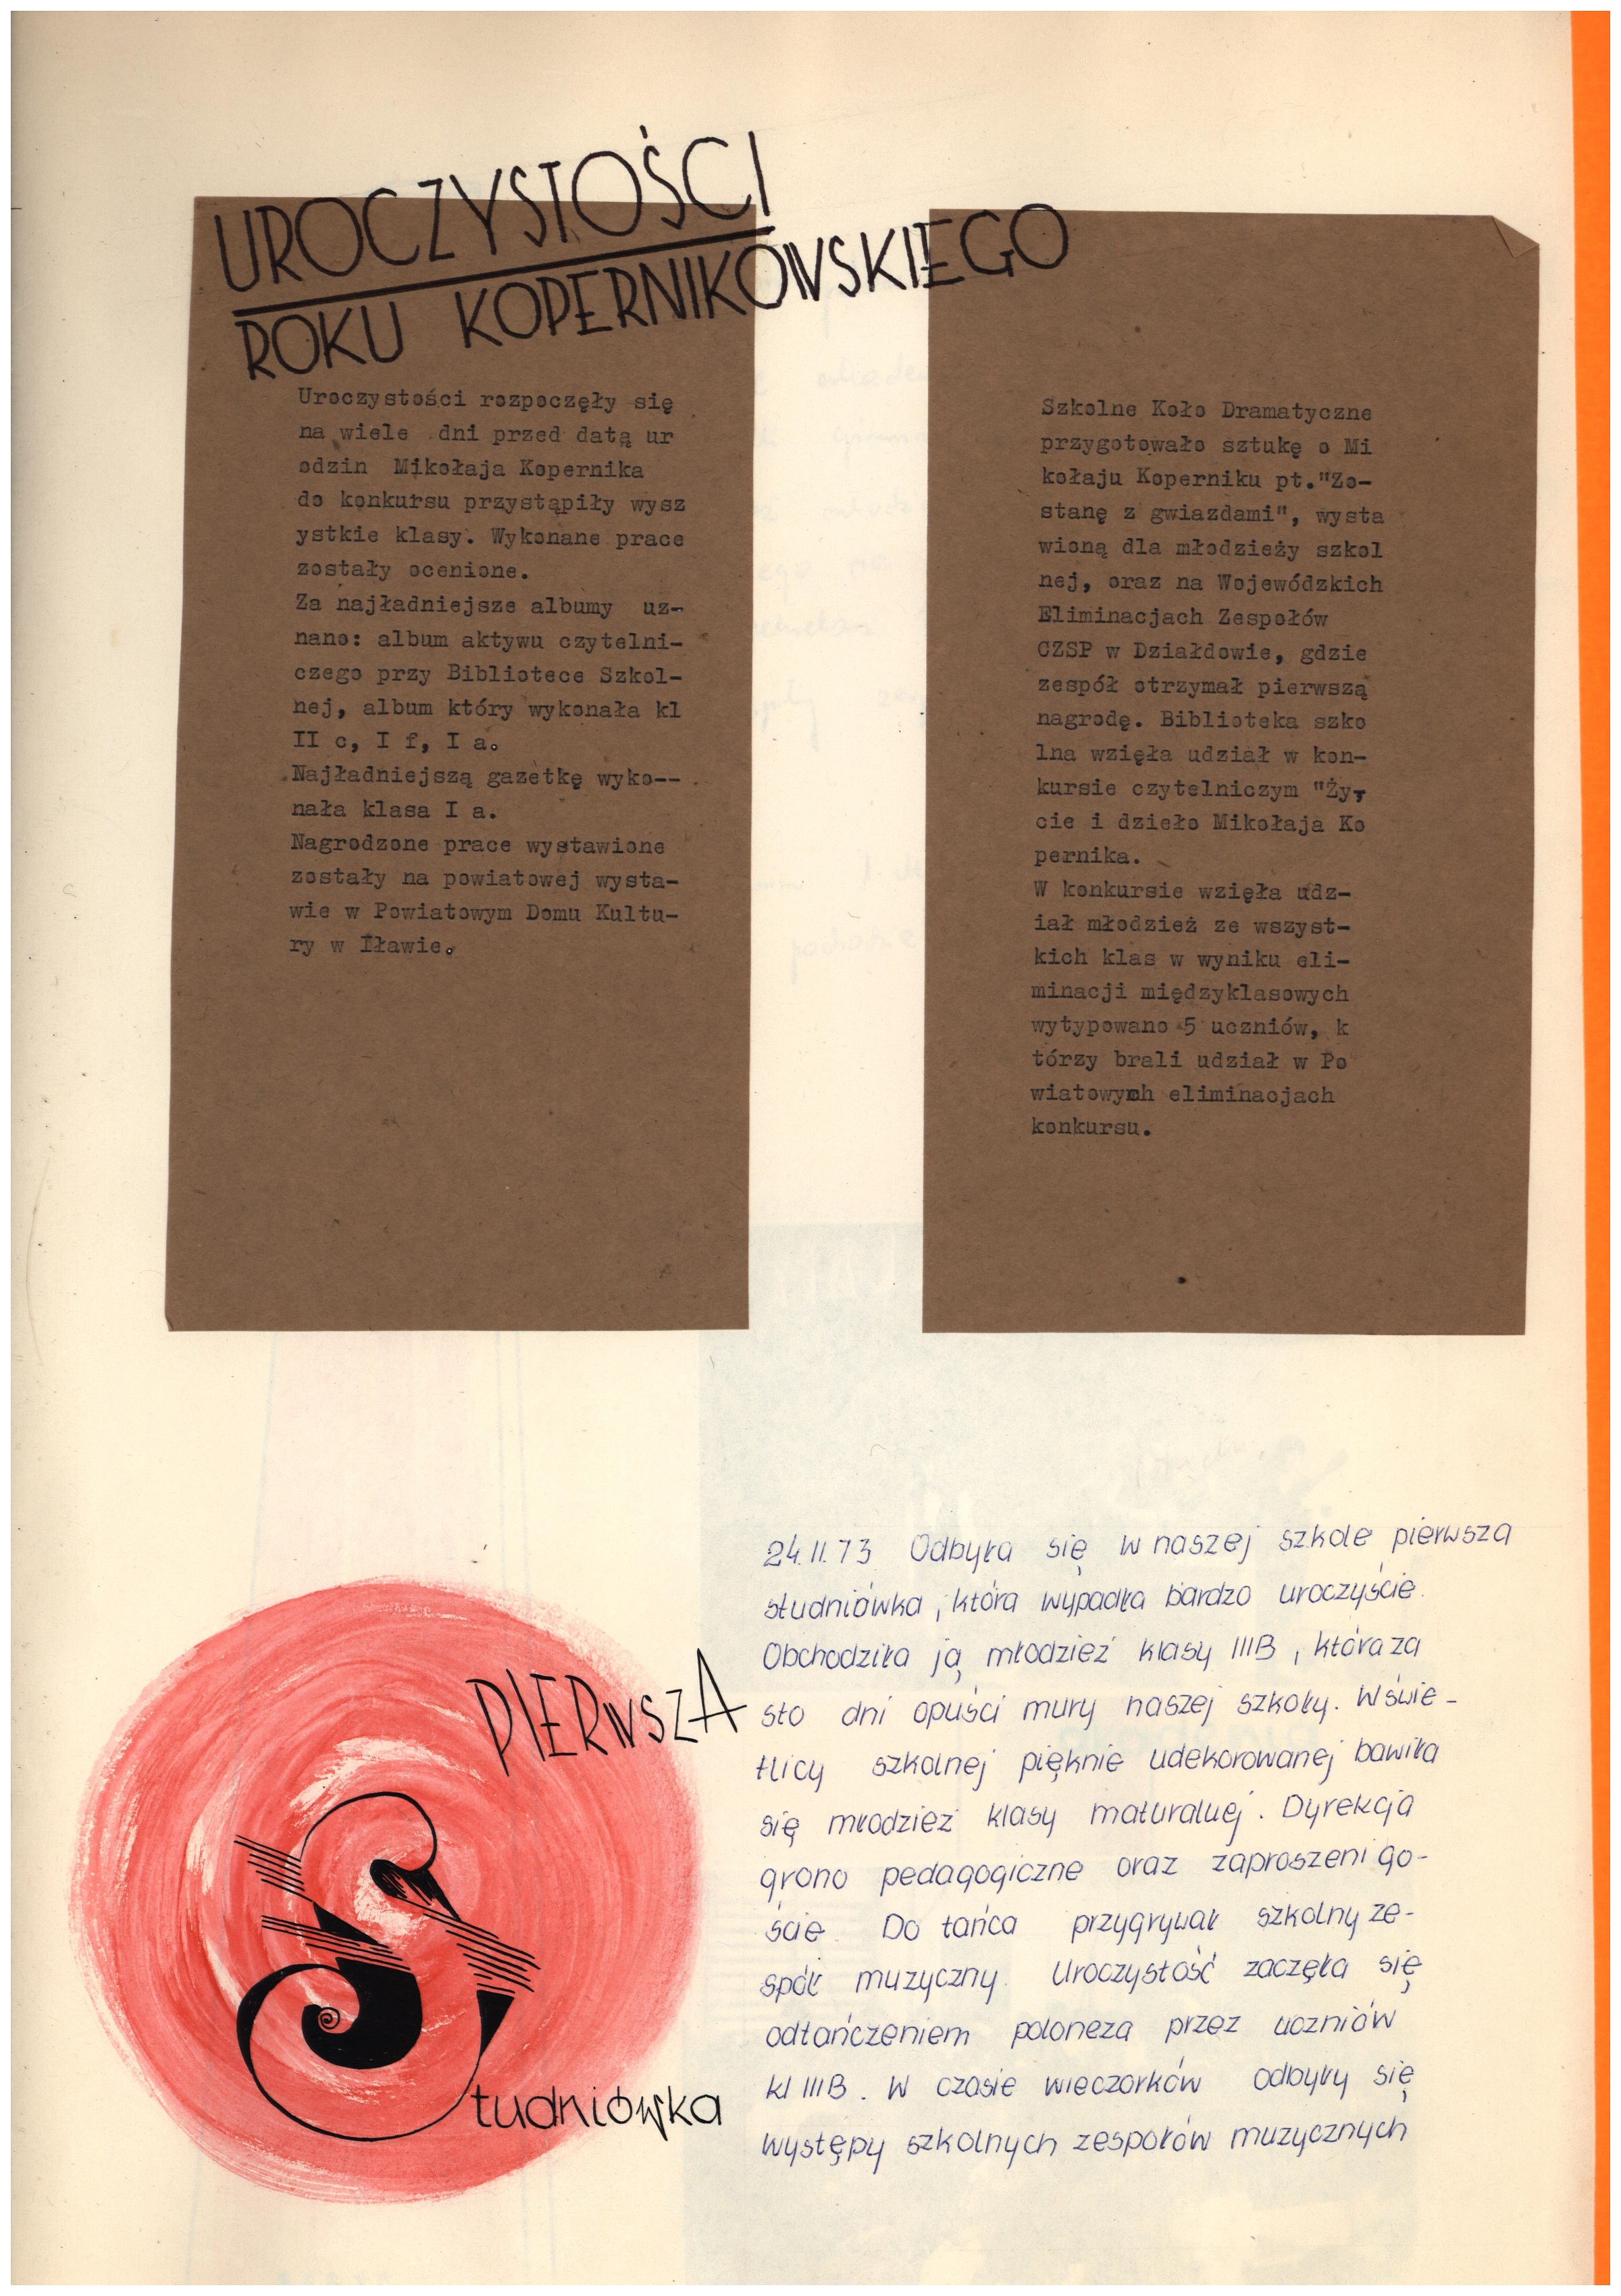 UROCZYSTOŚCI
ROKU KOPERNIKOWSKIEGO
Uroczystości rozpoczęły się
na wiele dni przed datą ur
odzin Mikołaja Kopernika
do konkursu przystąpiły wysz
ystkie klasy. Wykonane prace
zostały ocenione.
Za najładniejsze albumy uz-
nano: album aktywu czytelni-
czego przy Bibliotece Szkol-
nej, album który wykonała kl
II c, I f, I a.
Najładniejszą gazetkę wyko--
nała klasa I a.
Nagrodzone prace wystawione
zostały na powiatowej wysta-
wie w Powiatowym Domu Kultu-
ry w Iławie.
Szkolne Koło Dramatyczne
przygotowało sztukę o Mi
kołaju Koperniku pt."Zo-
stanę z gwiazdami", wysta
wioną dla młodzieży szkol
nej, oraz na Wojewódzkich
Eliminacjach Zespołów
CZSP w Działdowie, gdzie
zespół otrzymał pierwszą
nagrodę. Biblioteka szko
lna wzięła udział w kon-
kursie czytelniczym "Ży-
cie i dzieło Mikołaja Ko
pernika.
W konkursie wzięła udz-
iał młodzież ze wszyst-
kich klas w wyniku eli-
minacji międzyklasowych
wytypowano 5 uczniów, k
tórzy brali udział w Po
wiatowych eliminacjach
konkursu.
PIERWSZA
Studniówka
24.II.73 Odbyła się w naszej szkole pierwsza
studniówka, która wypadła bardzo uroczyście.
Obchodziła ją młodzież klasy IIIB, która za
sto dni opuści mury naszej szkoły. W świe-
tlicy szkolnej pięknie udekorowanej bawiła
się młodzież klasy maturalnej. Dyrekcja
grono pedagogiczne oraz zaproszeni go-
ście. Do tańca przygrywał szkolny ze-
spół muzyczny. Uroczystość zaczęła się
odtańczeniem poloneza przez uczniów
kl IIIB. W czasie wieczorków odbyły się
występy szkolnych zespołów muzycznych